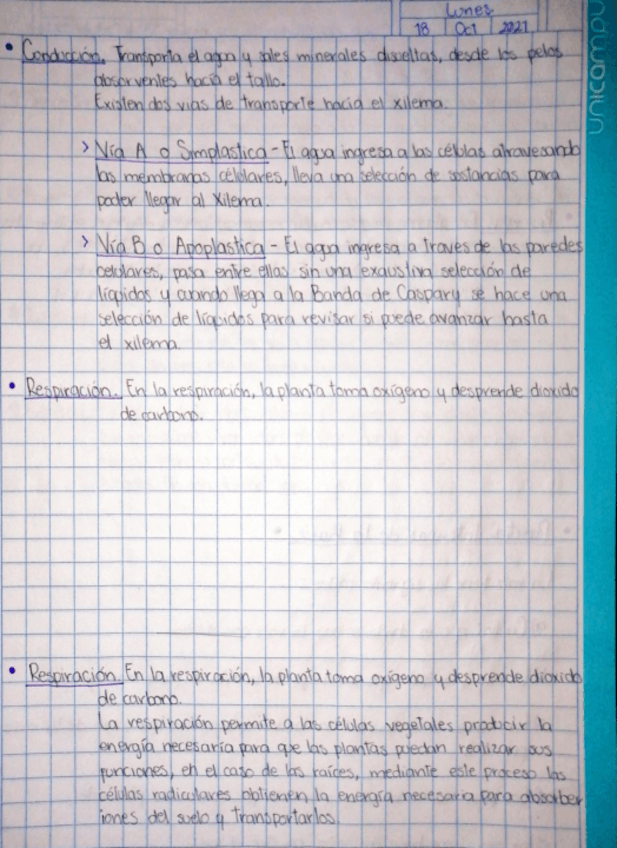 Lunes
18 Oct 2021
• Conducción. Transporta el agua y sales minerales disueltas, desde los pelos
absorventes hacia el tallo.
Existen dos vias de transporte hacia el xilema.
> Vía A o Simplastica - El agua ingresa a las células atravesando
las membranas celulares, lleva una selección de sustancias para
poder llegar al Xilema.
> Vía B o Apoplastica - El agua ingresa a traves de las paredes
celulares, pasa entre ellas sin una exaustiva selección de
líquidos y cuando llega a la Banda de Caspary se hace una
selección de líquidos para revisar si puede avanzar hasta
el xilema.
• Respiración. En la respiración, la planta toma oxígeno y desprende dioxido
de carbono.
• Respiración. En la respiración, la planta toma oxígeno y desprende dioxido
de carbono.
La respiración permite a las células vegetales producir la
energía necesaria para que las plantas puedan realizar sus
funciones, en el caso de las raíces, mediante este proceso las
células radiculares obtienen la energía necesaria para absorber
iones del suelo y transportarlos.
unicampu